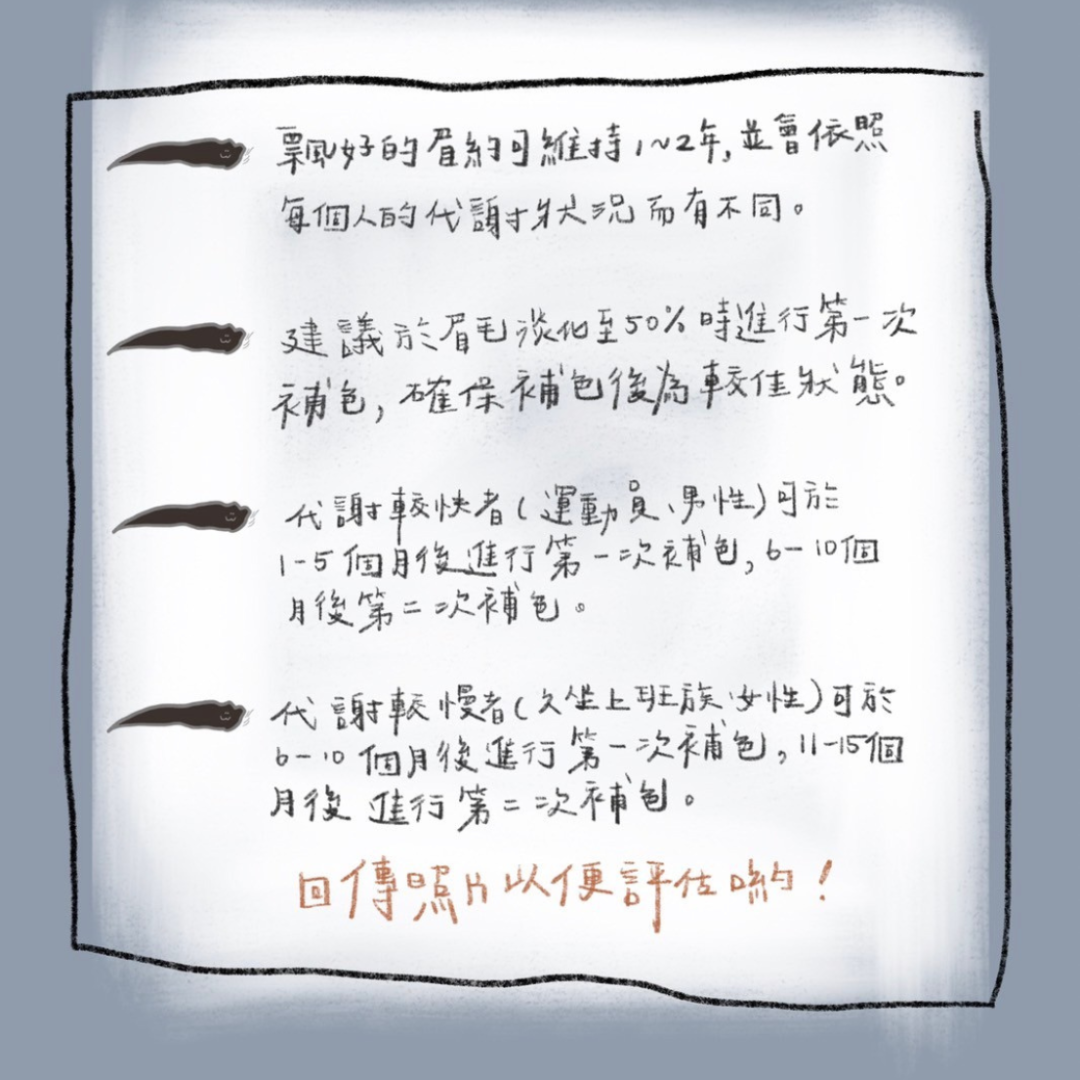 飄好的眉約可維持1~2年,並會依照
每個人的代謝狀況而有不同。
建議於眉毛淡化至50%時進行第一次
補色,確保補色後為較佳狀態。
代謝較快者(運動員、男性)可於
1-5個月後進行第一次補色,6-10個
月後第二次補色。
代謝較慢者(久坐上班族、女性)可於
6-10個月後進行第一次補色,11-15個
月後進行第二次補色。
回傳照片以便評估喲!